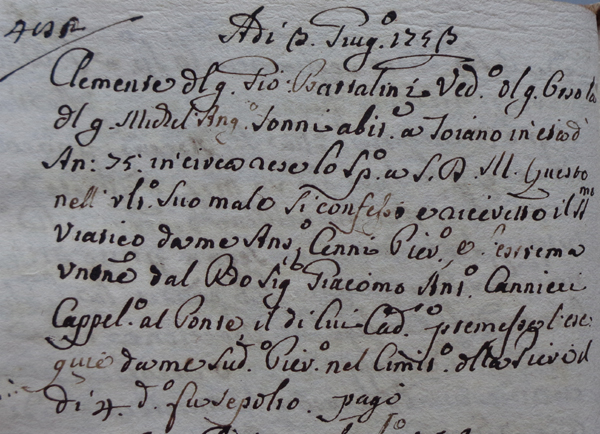 Adi 3. Giug.o 1753
Clemente dl q. Gio: Bartalini Ved.o dl q.
dl q. Michel Ang.o Tonni abit.e a Toiano in età d
An: 75: in circa rese lo Sp.o a S. D. M. Questo
nell' vlt.o suo male si confessò e ricevette il SS.mo
Viatico da me Ant.o Cenni Piev.o e l'estrema
vnone dal Rdo Sig.o Giacomo Ant.o Cannieri
Cappel.o al Ponte il di lui Cad.o premesse l'ese
quie da me Sud.o Piev.o nel Cimit.o dlla Pieve il
di 4. d.o fu sepolto. pagò